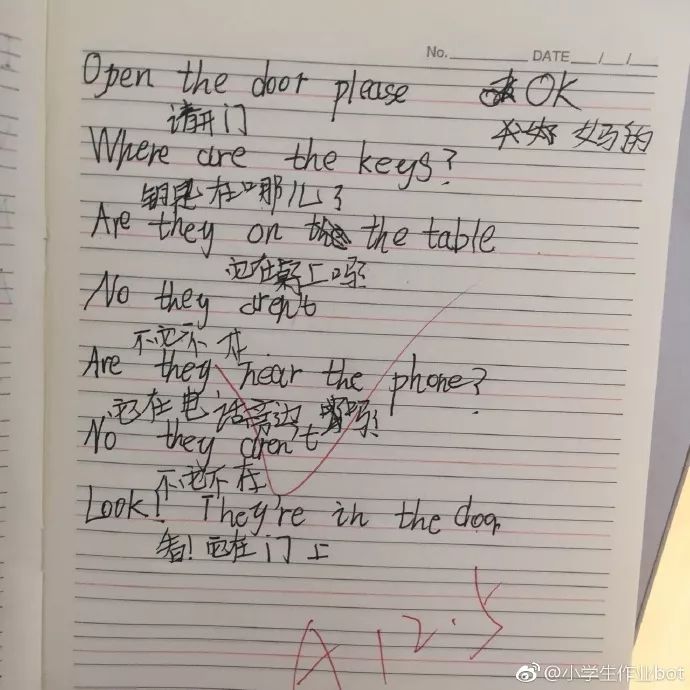 No. DATE / /
Open the door please OK
请开门 好的
Where are the keys?
钥匙在哪儿?
Are they on the table
它在桌上吗!
No they aren't
不它不在
Are they near the phone?
它在电话旁边吗!
No they aren't
不它不在
Look! They're in the door
看!它在门上
A 12.5
@小学生作业bot